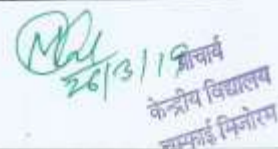 26/3/19
प्राचार्य
केन्द्रीय विद्यालय
चम्फाई मिजोरम